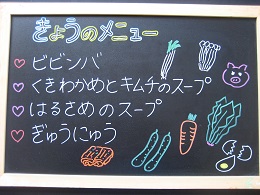 きょうのメニュー
ビビンバ
くきわかめとキムチのスープ
はるさめのスープ
ぎゅうにゅう